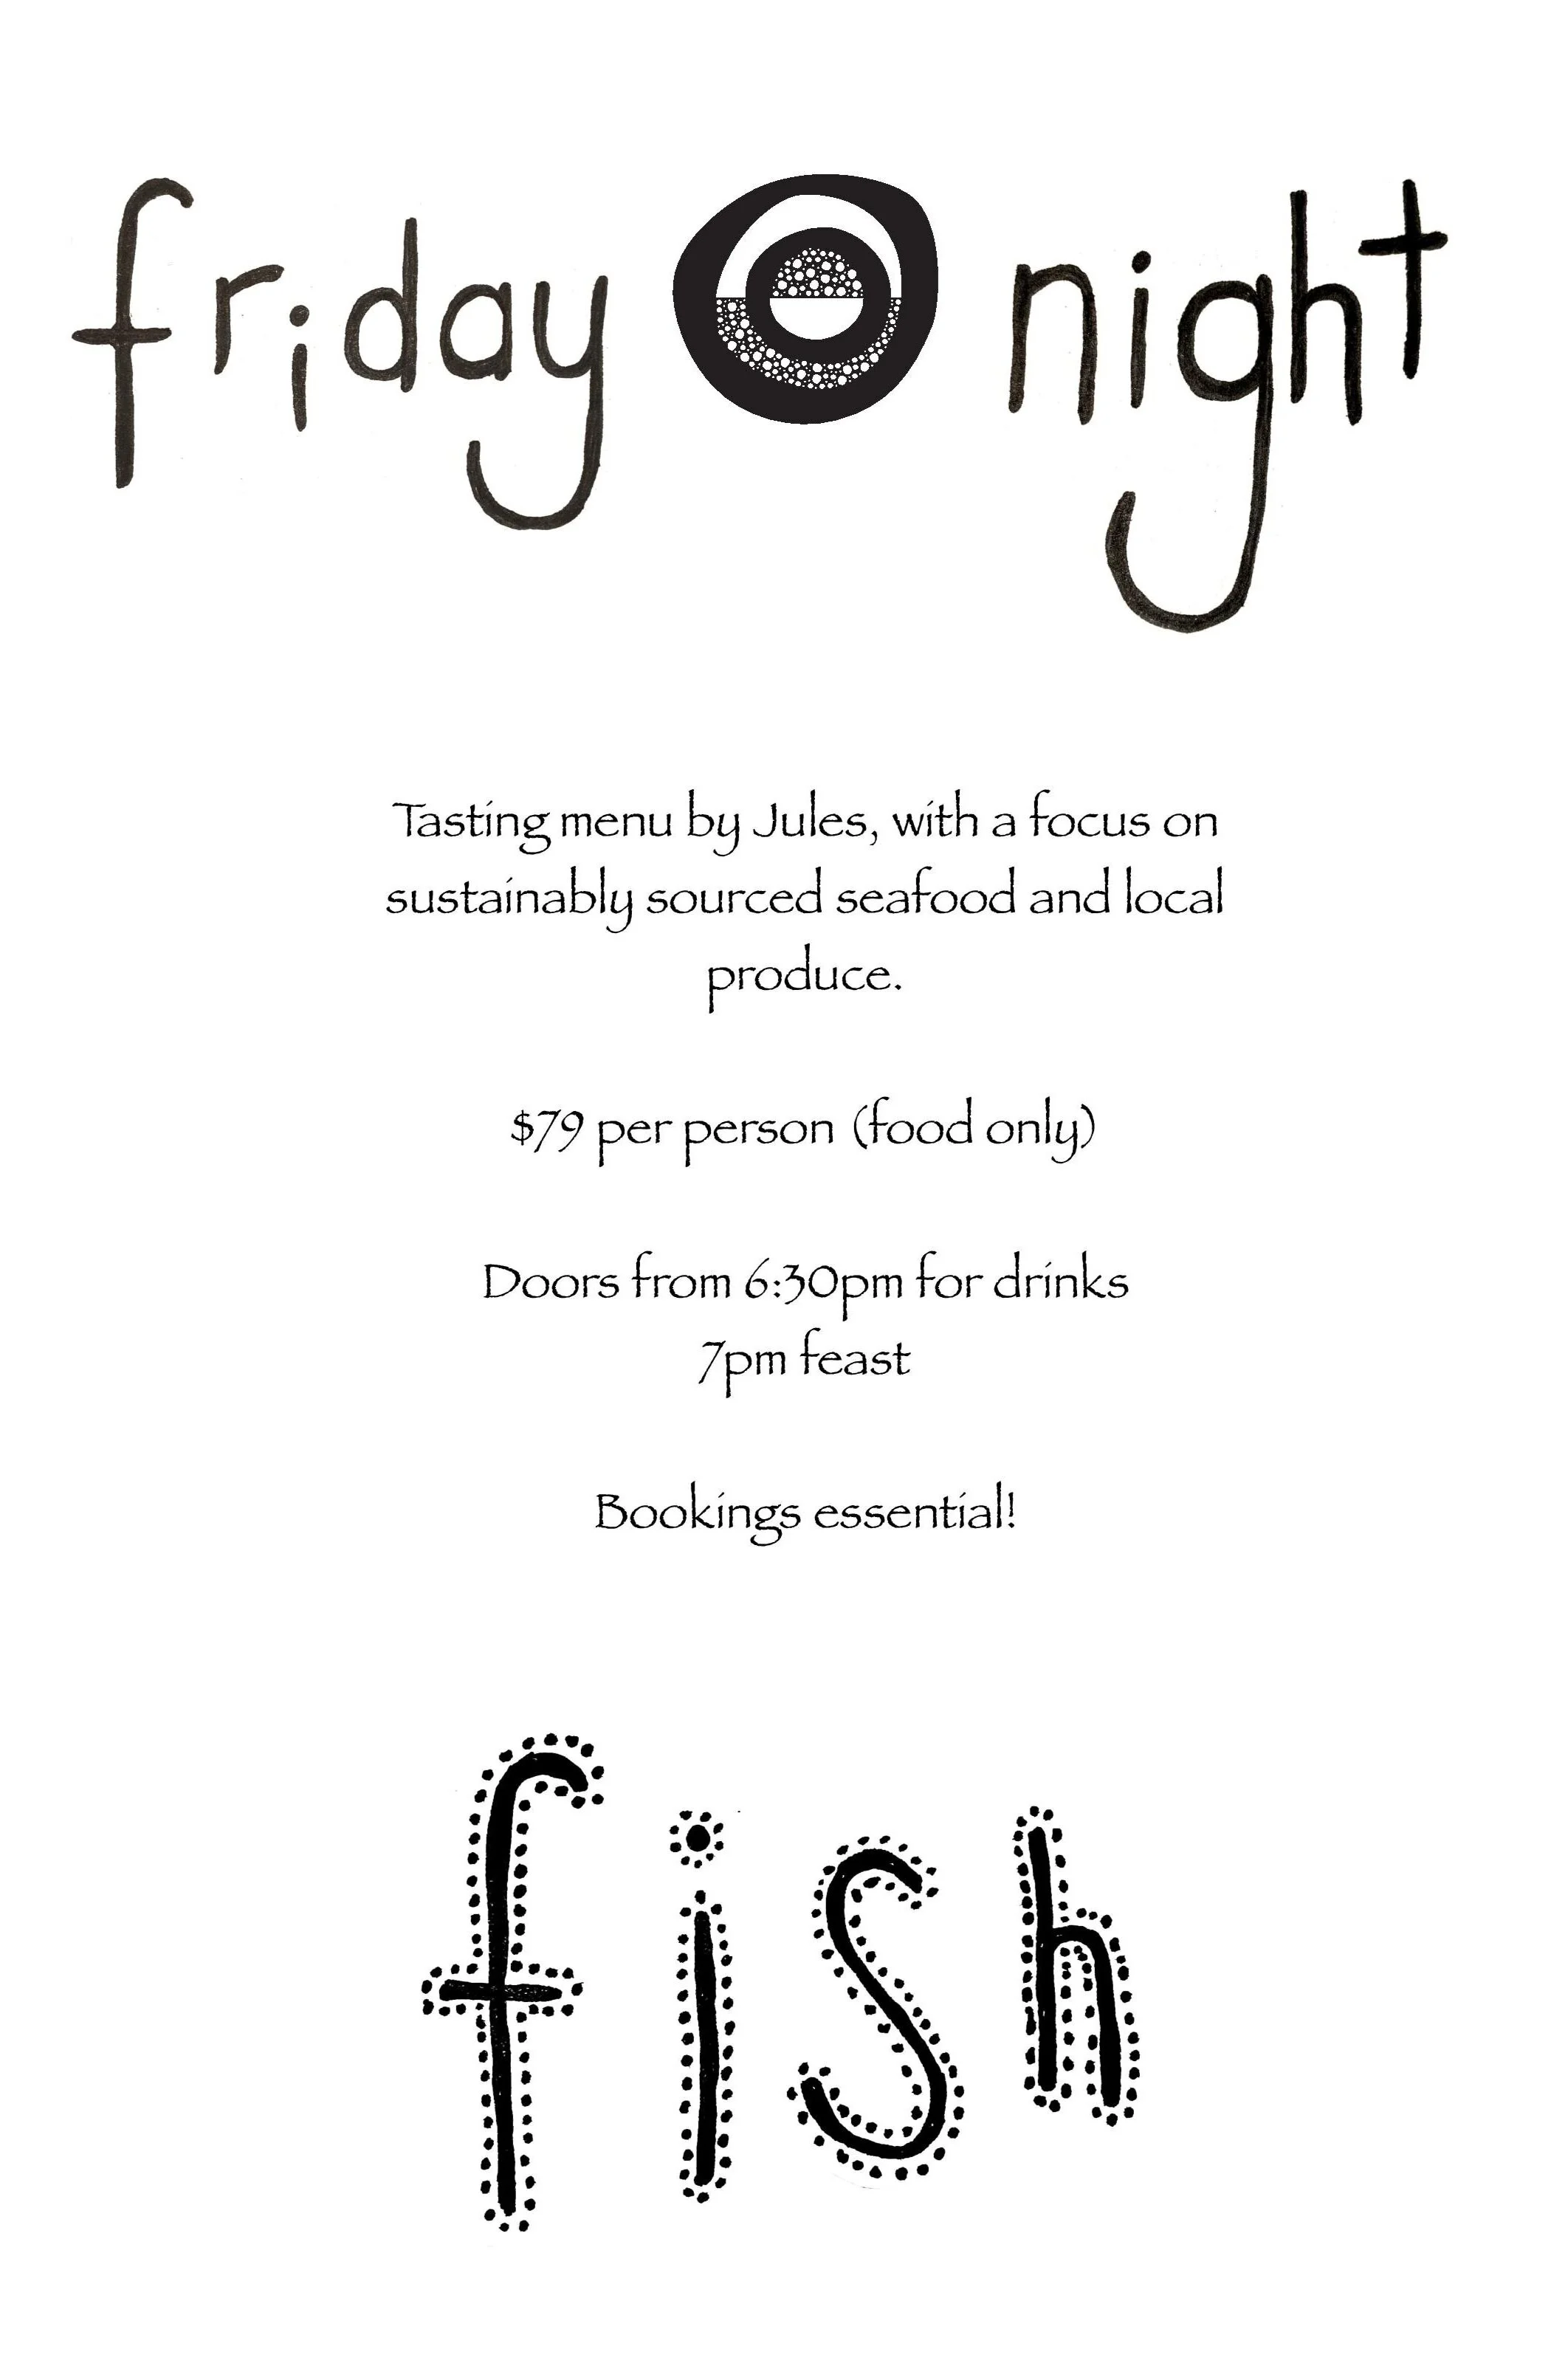 friday night
Tasting menu by Jules, with a focus on
sustainably sourced seafood and local
produce.
$79 per person (food only)
Doors from 6:30pm for drinks
7pm feast
Bookings essential!
fish